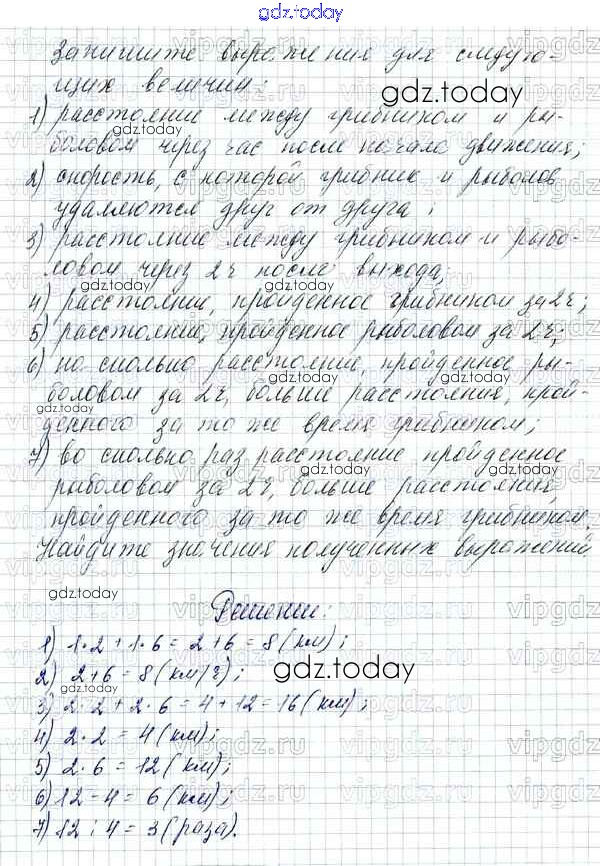 gdz.today
Запишите выражения для следую-
щих величин:
gdz.today
1) расстояние между грибником и ры-
gdz.today
боловом через час после начала движения;
2) скорость, с которой грибник и рыболов
gdz.today
удаляются друг от друга;
3) расстояние между грибником и рыбо-
ловом через 2ч после выхода;
gdz.today
4) расстояние, пройденное грибником за 2ч;
5) расстояние, пройденное рыболовом за 2ч;
gdz.today
6) на сколько расстояние, пройденное ры-
gdz.today
боловом за 2ч, больше расстояния, прой-
gdz.today
денного за то же время грибником;
7) во сколько раз расстояние пройденное
gdz.today
рыболовом за 2ч, больше расстояния,
пройденного за то же время грибником.
Найдите значения полученных выражений.
gdz.today
Решение:
1) 1·2 + 1·6 = 2 + 6 = 8 (км);
2) 2+6 = 8 (км/ч);
gdz.today
gdz.today
3) 2·2 + 2·6 = 4 + 12 = 16 (км);
4) 2·2 = 4 (км);
5) 2·6 = 12 (км);
6) 12 - 4 = 6 (км);
gdz.today
7) 12 : 4 = 3 (раза).